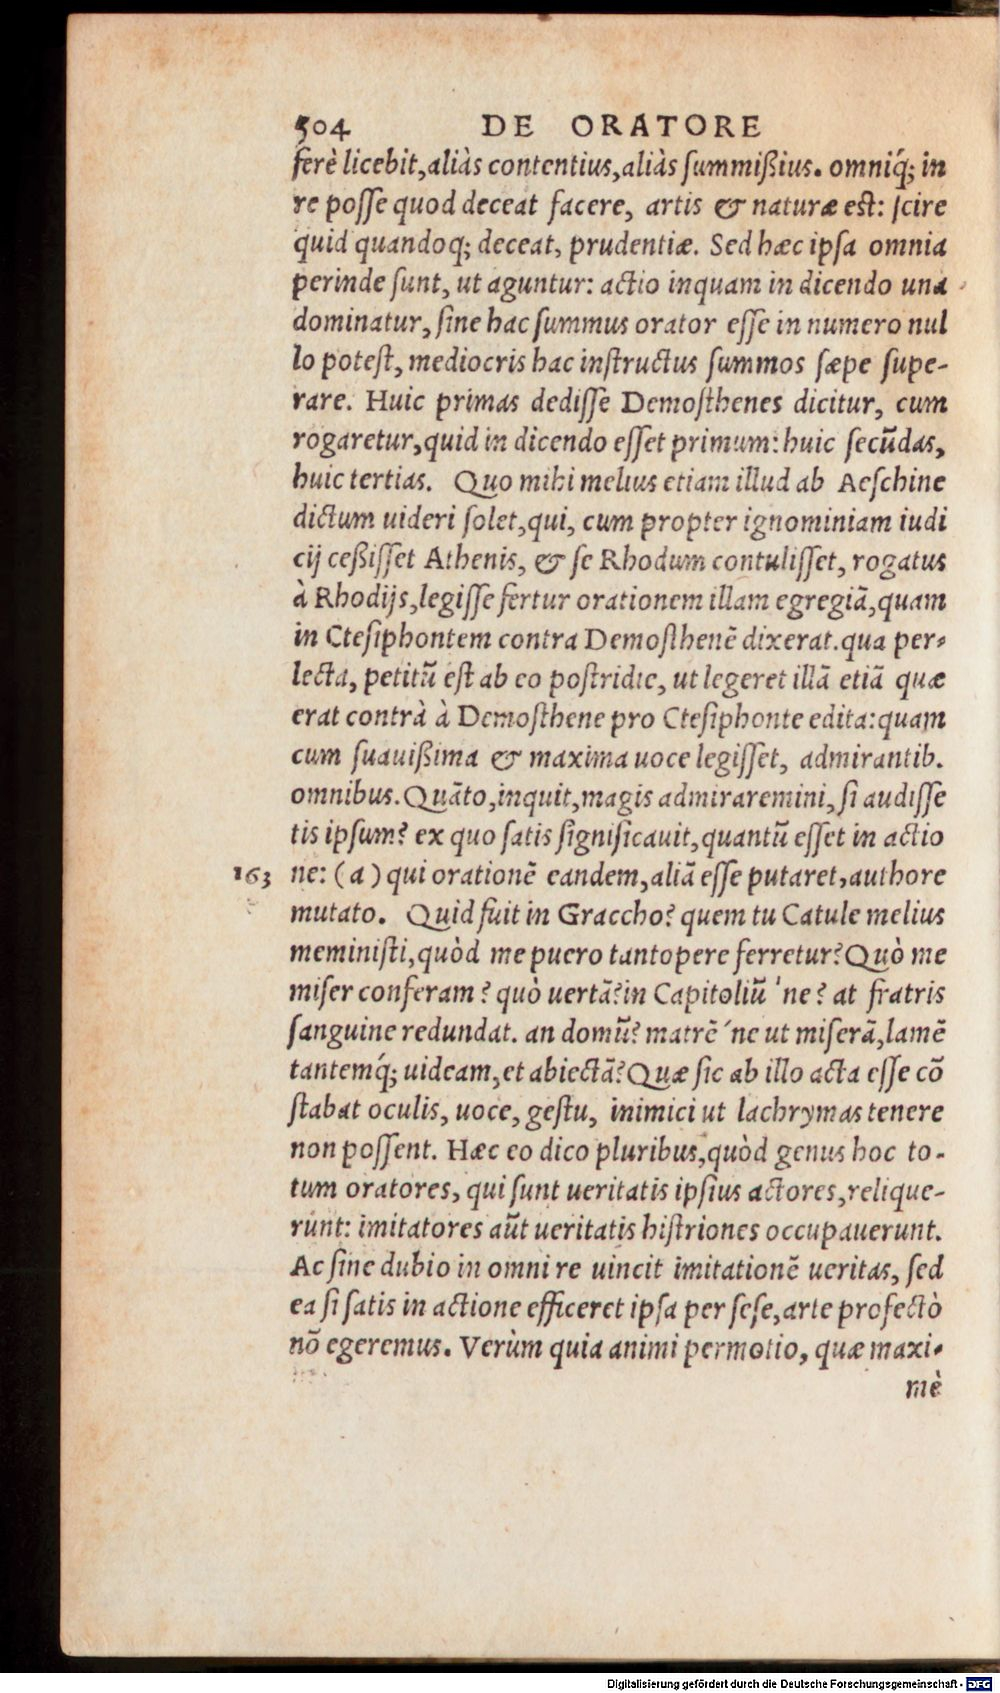 504 DE ORATORE
ferè licebit, aliàs contentius, aliàs summißius. omniq́; in
re posse quod deceat facere, artis & naturæ est: scire
quid quandoq; deceat, prudentiæ. Sed hæc ipsa omnia
perinde sunt, ut aguntur: actio inquam in dicendo una
dominatur, sine hac summus orator esse in numero nul
lo potest, mediocris hac instructus summos sæpe supe-
rare. Huic primas dedisse Demosthenes dicitur, cum
rogaretur, quid in dicendo esset primum: huic secũdas,
huic tertias. Quo mihi melius etiam illud ab Aeschine
dictum uideri solet, qui, cum propter ignominiam iudi
cij ceßisset Athenis, & se Rhodum contulisset, rogatus
à Rhodijs, legisse fertur orationem illam egregiã, quam
in Ctesiphontem contra Demosthenẽ dixerat. qua per-
lecta, petitũ est ab eo postridie, ut legeret illã etiã quæ
erat contrà à Demosthene pro Ctesiphonte edita: quam
cum suauißima & maxima uoce legisset, admirantib.
omnibus. Quãto, inquit, magis admiraremini, si audisse
tis ipsum? ex quo satis significauit, quantũ esset in actio
163 ne: (a) qui orationẽ eandem, aliã esse putaret, authore
mutato. Quid fuit in Graccho? quem tu Catule melius
meministi, quòd me puero tantopere ferretur? Quò me
miser conferam? quò uertã? in Capitoliũ 'ne? at fratris
sanguine redundat. an domũ? matrẽ 'ne ut miserã, lamẽ
tantemq́; uideam, et abiectã? Quæ sic ab illo acta esse cõ
stabat oculis, uoce, gestu, inimici ut lachrymas tenere
non possent. Hæc eo dico pluribus, quòd genus hoc to-
tum oratores, qui sunt ueritatis ipsius actores, relique-
runt: imitatores aũt ueritatis histriones occupauerunt.
Ac sine dubio in omni re uincit imitationẽ ueritas, sed
ea si satis in actione efficeret ipsa per sese, arte profectò
nõ egeremus. Verùm quia animi permotio, quæ maxi-
mè
Digitalisierung gefördert durch die Deutsche Forschungsgemeinschaft - DFG